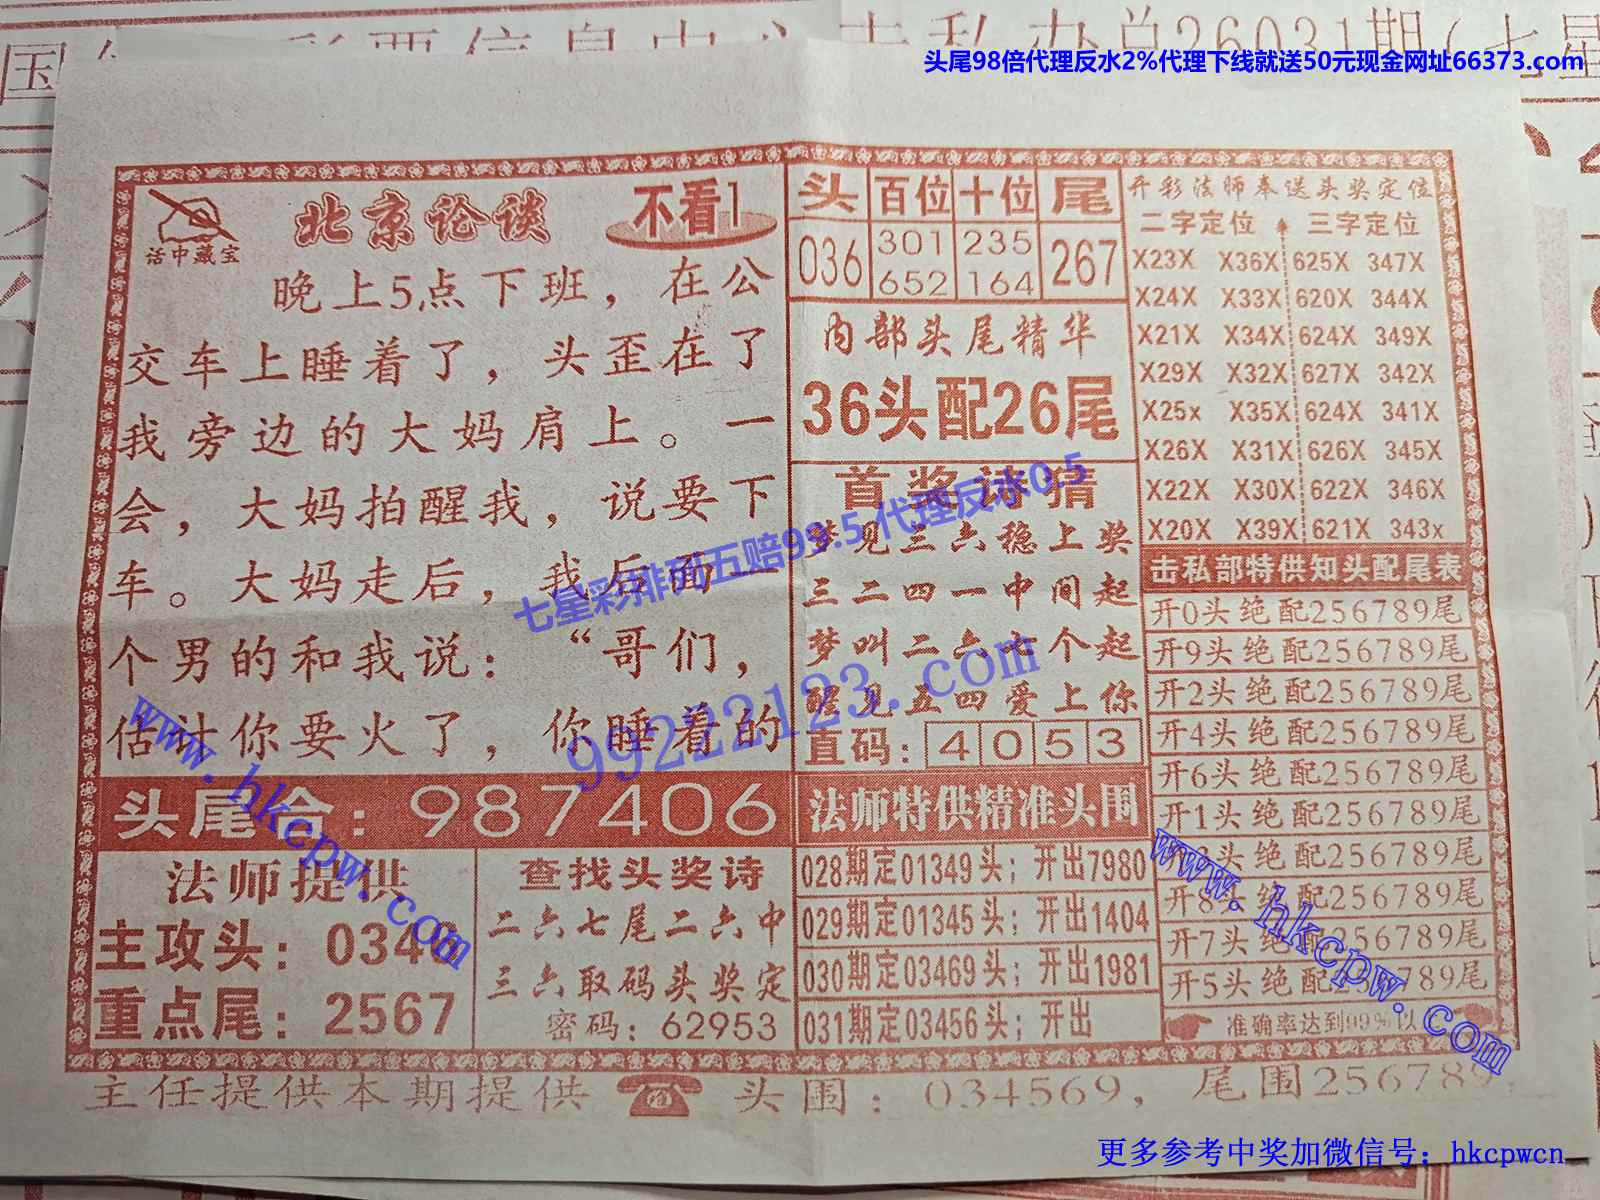 头尾98倍代理反水2%代理下线就送50元现金网址66373.com
26031期(七星
话中藏宝
北京论谈
不看1
晚上5点下班，在公
交车上睡着了，头歪在了
我旁边的大妈肩上。一
会，大妈拍醒我，说要下
车。大妈走后，我后面一
个男的和我说：“哥们，
估计你要火了，你睡着的
头尾合：987406
法师提供
主攻头：0346
重点尾：2567
查找头奖诗
二六七尾二六中
三六取码头奖定
密码：62953
头 百位 十位 尾
036 301 235 267
652 164
内部头尾精华
36头配26尾
首奖诗猜
梦见三六稳上奖
三二四一中间起
梦叫二六七个起
醒见五四爱上你
直码：4053
法师特供精准头围
028期定01349头；开出7980
029期定01345头；开出1404
030期定03469头；开出1981
031期定03456头；开出
开彩法师奉送头奖定位
二字定位 三字定位
X23X X36X 625X 347X
X24X X33X 620X 344X
X21X X34X 624X 349X
X29X X32X 627X 342X
X25x X35X 624X 341X
X26X X31X 626X 345X
X22X X30X 622X 346X
X20X X39X 621X 343x
击私部特供知头配尾表
开0头绝配256789尾
开9头绝配256789尾
开2头绝配256789尾
开4头绝配256789尾
开6头绝配256789尾
开1头绝配256789尾
头绝配256789尾
开8头绝配256789尾
开7头绝配256789尾
开5头绝配256789尾
准确率达到99%以
主任提供本期提供 头围：034569，尾围256789
七星彩排列五赔99.5代理反水0.5
99222123.com
www.hkcpw.com
www.hkcpw.com
更多参考中奖加微信号：hkcpwcn